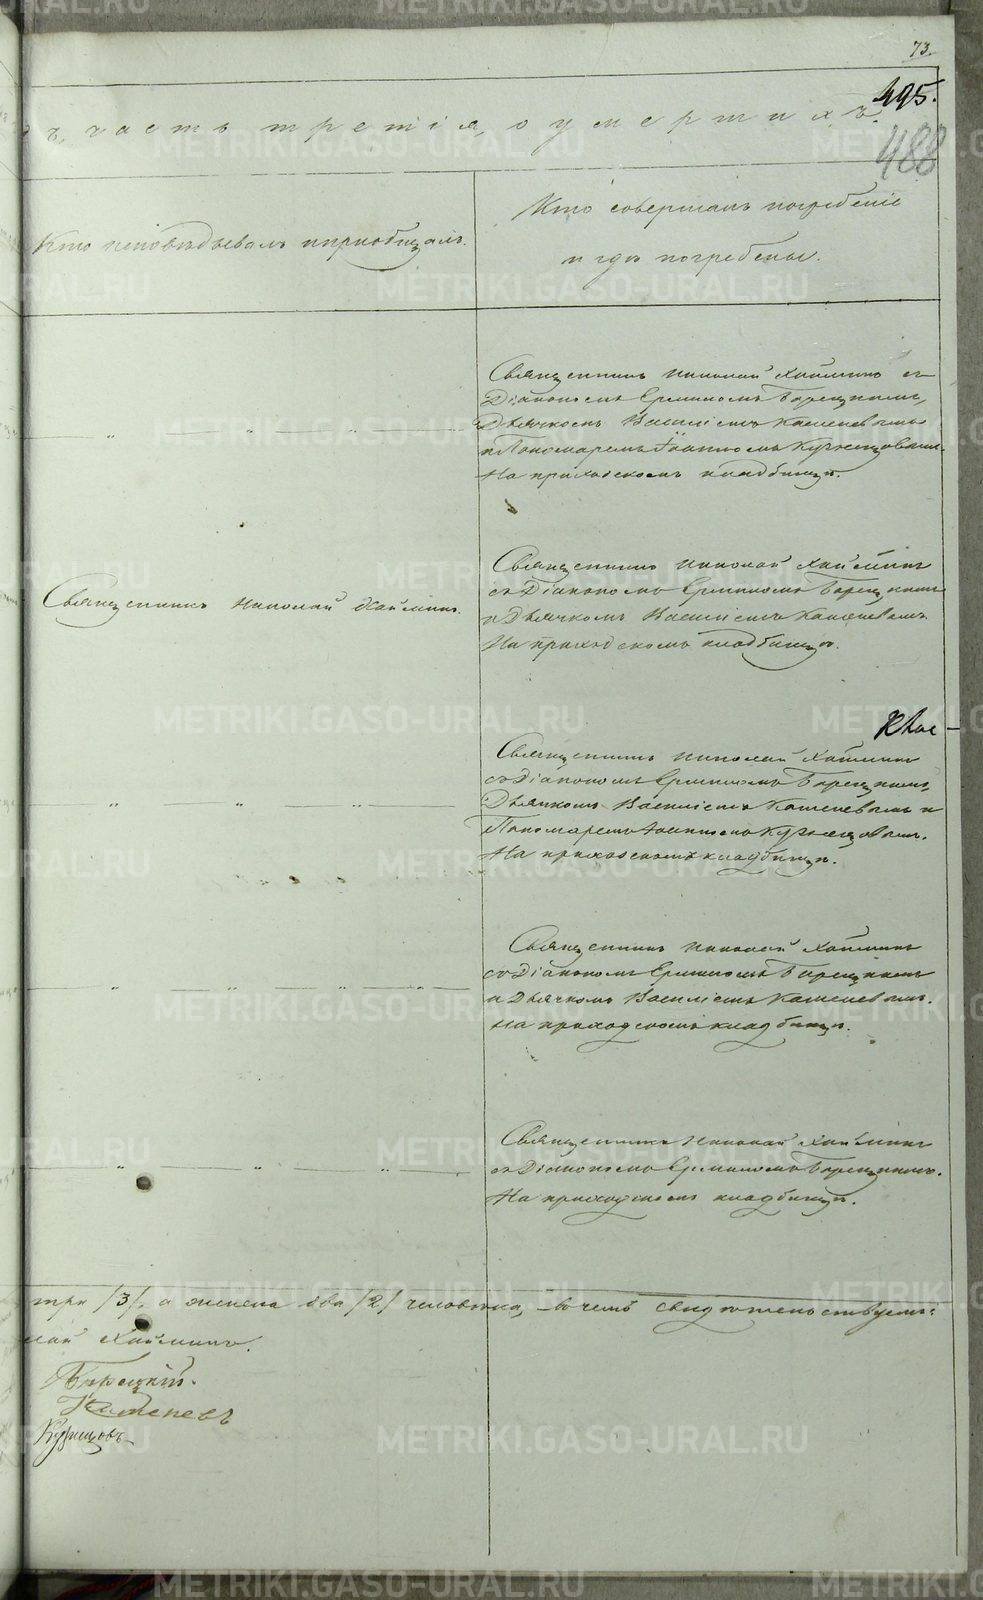 73.
495.
488
дъ, часть третія, о умершихъ.
Кто исповѣдывалъ и пріобщалъ.
Кто совершалъ погребеніе
и гдѣ погребены.
Священникъ Николай Хайминъ съ
Діакономъ Ерминомъ
Дьячкомъ Василіемъ Кашеневымъ
и Пономаремъ Іоанномъ Кузнецовымъ.
На приходскомъ кладбищѣ.
Священникъ Николай Хайминъ.
Священникъ Николай Хайминъ
съ Діакономъ Ерминомъ
и Дьячкомъ Василіемъ Кашеневымъ.
На приходскомъ кладбищѣ.
Священникъ Николай Хайминъ
съ Діакономъ Ерминомъ
Дьячкомъ Василіемъ Кашеневымъ и
Пономаремъ Іоанномъ Кузнецовымъ.
На приходскомъ кладбищѣ.
Священникъ Николай Хайминъ
съ Діакономъ Ерминомъ
и Дьячкомъ Василіемъ Кашеневымъ.
На приходскомъ кладбищѣ.
Священникъ Николай Хайминъ
съ Діакономъ Ерминомъ
На приходскомъ кладбищѣ.
три /3/, а женска два /2/ человѣка, въ чемъ свидѣтельствуемъ:
лай Хайминъ.
Кашеневъ
Кузнецовъ
METRIKI.GASO-URAL.RU